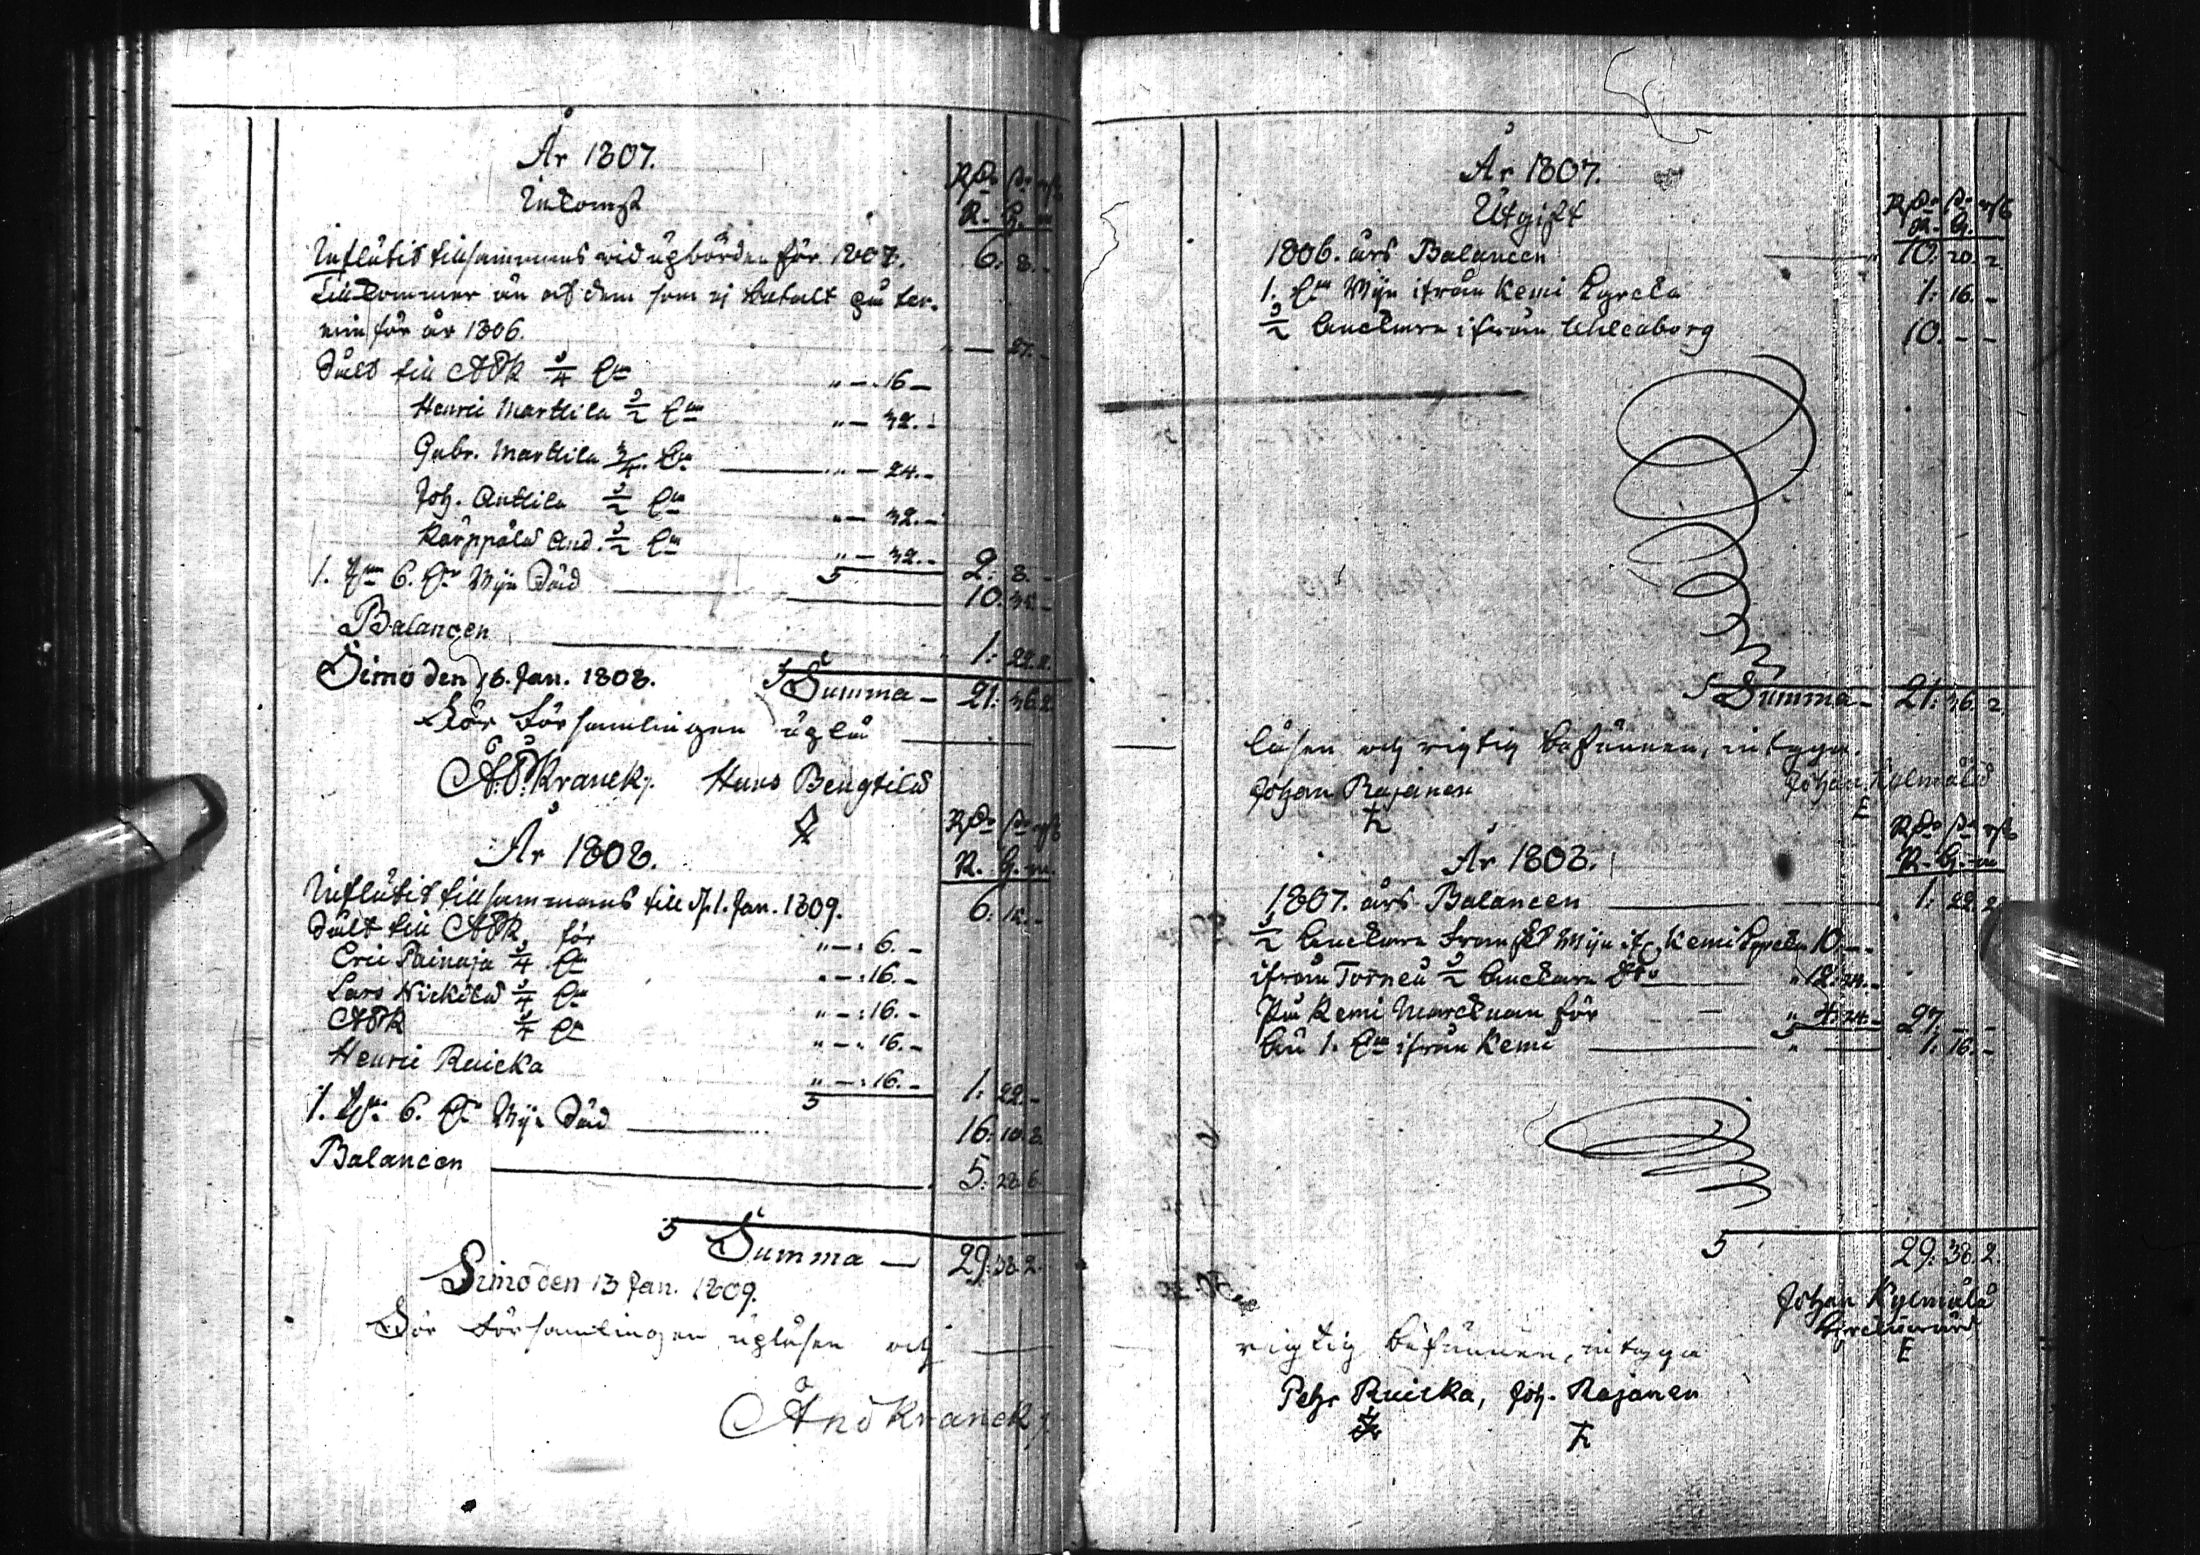 År 1807.
Inkomst
Rdr sk rst
R. G. m
Influtit tillsammans vid upbörden för 1807. 6: 8. -
Tillkommer än af dem som ej betalt på ter-
min för år 1806. " — 27. -
Såld till AOK 1/4 Kna " — : 16 —
Henric Marttila 1/2 Kna " — 32. -
Gabr. Marttila 3/4 Kna " — 24. -
Joh. Anttila 1/2 Kna " — 32. -
Karppala And. 1/2 Kna " — 32. - 2: 8. -
1. 6. Wijn Såld 10: 32. -
Balancen 1: 22. 2.
Simo den 16. Jan. 1808. Summa — 21: 36. 2
För Församlingen uplä
A. O. Kranck. Hans Bengtilä
År 1808.
Rdr sk rst
R. G. m.
Influtit tillsammans till d. 1. Jan. 1809. 6: 12. -
Såld till AOK för " — : 6. -
Eric Painaja 1/4 Kna " — : 16. -
Lars Nickilä 1/4 Kna " — : 16. -
AOK 1/4 Kna " — : 16. -
Henric Ruicka " — : 16. - 1: 22. -
1. 6. Wijn Såld 16: 10. 8.
Balancen 5: 28. 6.
Summa — 29: 38. 2.
Simo den 13 Jan. 1809.
För Församlingen upläsen och
And Kranck
År 1807.
Utgift
Rdr sk rst
R. G.
1806. års Balancen 10: 20. 2
1. Kna Wijn ifrån Kemi Kyrcka 1: 16. -
1/2 Anckare ifrån Uhleåborg 10. - -
Summa — 21: 36. 2.
läsen och rigtig befunnen, intyga.
Johan Rajanen Johan Kylmälä
År 1808.
Rdr sk rst
R. G. m
1807. års Balancen 1: 22. 2
1/2 Anckare Wijn if. Kemi Kyrcka 10. - -
ifrån Torneå 1/2 Anckare Dto " 12: 24. -
På Kemi Marcknan för " 4: 24. - 27. - -
Än 1. Kna ifrån Kemi 1: 16. -
29: 38. 2.
Johan Kylmälä
Kyrckiovärd
rigtig befunnen, intyga
Pehr Ruicka, Joh. Rajanen